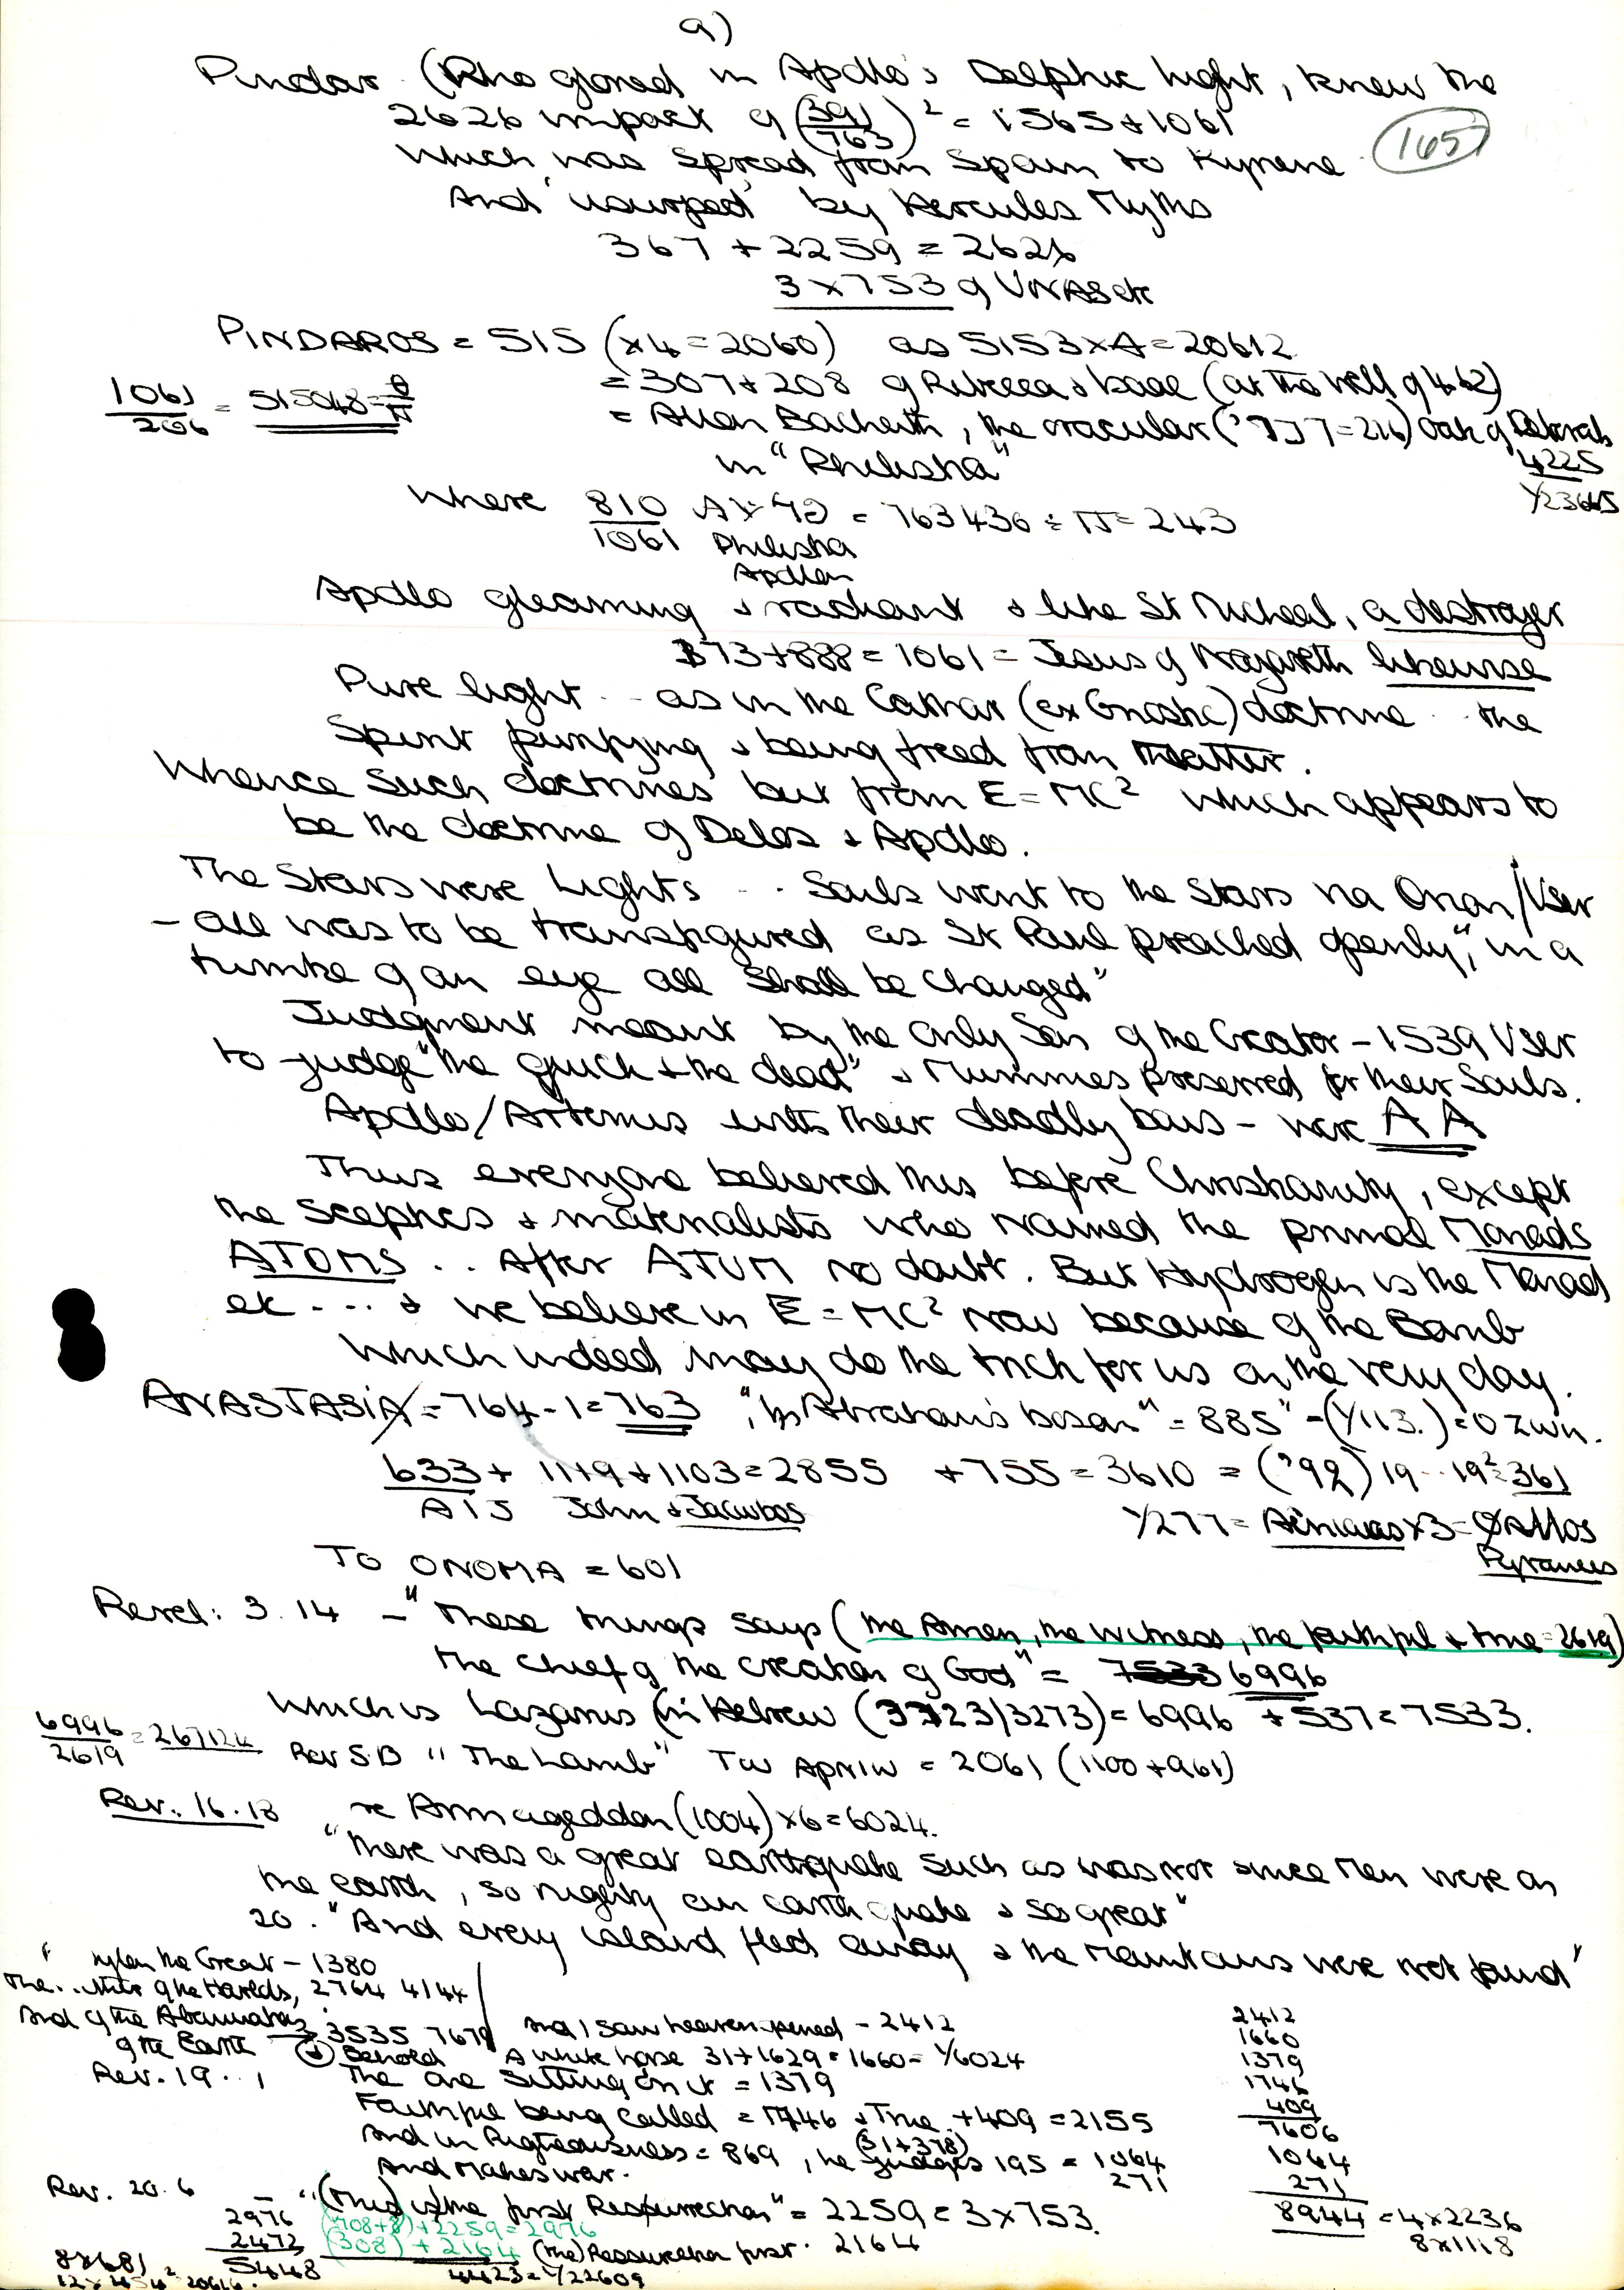 9)
Pindar (Who gloried in Apollo's Delphic light, knew the
2626 impact of (391/763)² = 1565 + 1061
165
which was spread from Spain to Kyrene
And 'usurped' by Hercules Myths
367 + 2259 = 2626
3 x 753 of UNAS etc
PINDAROS = 515 (x4 = 2060) as 5153 x 4 = 20612
1061/206 = 515048 = θ/π
= 307 + 208 of Rebecca (at the Well of 462)
= Allon Bachuth, the oracular ( = 216) oak of Deborah
4225
in "Philistia"
Where 810/1061 = 763436 ÷ π = 243
Philistia
Apollon
Apollo gleaming & radiant & like St Micheal, a destroyer
173 + 888 = 1061 = Jesus of Nazareth likewise
Pure light .. as in the Cathar (ex Gnostic) doctrine .. the
Spirit purifying & being freed from Matter.
Whence such doctrines but from E = MC² which appears to
be the doctrine of Delos & Apollo.
The Stars were Lights .. Souls went to the Stars via Orion/User
- all was to be transfigured as St Paul preached openly, "in a
twinke of an eye all shall be changed"
Judgment meant by the Only Son of the Creator - 1539 User
to judge "the quick & the dead" & Mummies preserved for their Souls.
Apollo/Artemis with their deadly bows - were AA
Thus everyone believed this before Christianity, except
the Sceptics & materialists who named the primal Monads
ATOMS .. After ATUM no doubt. But Hydrogen is the Monad
etc ... & we believe in E = MC² now because of the Bomb
which indeed may do the trick for us on the very day.
ANASTASIA = 764 - 1 = 763 "in Abraham's bosom" = 885 - (1/113.) = 0 Zwn.
633 + 1119 + 1103 = 2855 + 755 = 3610 = ('92) 19 .. 19² = 361
John & Jacobos
1/277 = x 3 =
Pyranees
TO ONOMA = 601
Revel: 3.14 - "These things says (the Amen, the witness, the faithful & true = 2619)
the chief of the creation of God" = 7533 6996
which is Lazarus (in Hebrew (3723/3273) = 6996 + 537 = 7533.
6996/2619 = 267124
Rev 5.13 "The Lamb" Tw APNIW = 2061 (1100 + 961)
Rev. 16.18 re Armageddon (1004) x 6 = 6024.
"there was a great earthquake such as was not since Men were on
the earth, so mighty an earthquake & so great"
20. "And every island fled away & the Mountains were not found"
"
the Great - 1380
The of the Harlots, 2764 4144
And of the Abominations
of the Earth 3535 7679
And I saw heaven opened - 2412
& Behold A white horse 31 + 1629 = 1660 = 1/6024
Rev. 19..1 The one sitting on it = 1379
Faithful being called = 1746 & True + 409 = 2155
(31 + 378)
And in Righteousness = 869, he judges 195 = 1064
And makes war. 271
2412
1660
1379
1746
409
7606
1064
271
8944 = 4 x 2236
8 x 1118
Rev. 20.6 - "(This) is the first Resurrection" = 2259 = 3 x 753.
2976 (708 + 8) + 2259 = 2976
2472 (308) + 2164 (the) Ressurection first. 2164
5448 4423 = 1/22609
8 x 681
12 x 454² 20616.